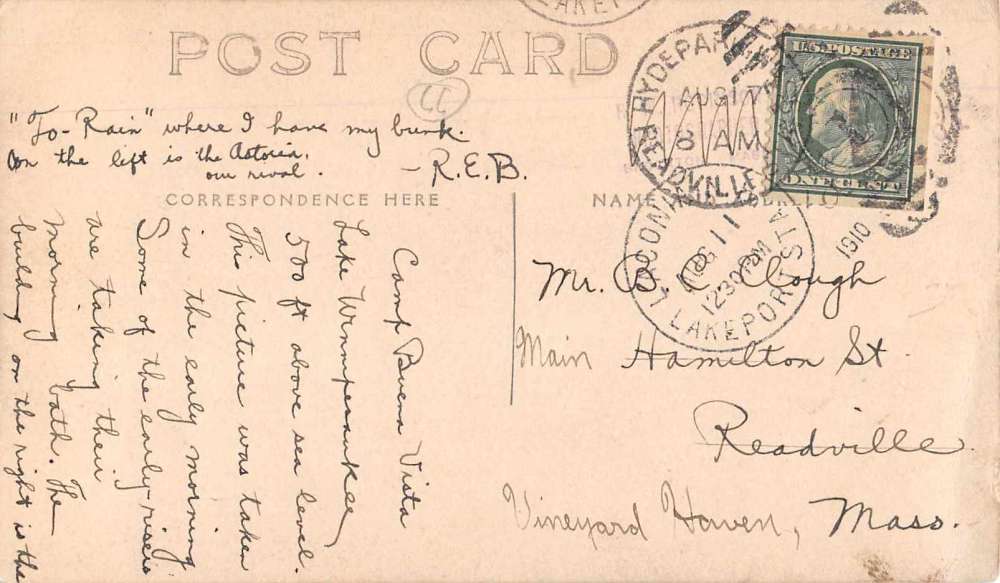 LAKEP
POST CARD
LL
HYDE PARK
AUG 17
8 AM
READVILLE STA
U.S. POSTAGE
ONE CENT
LACONIA
AUG 11
1230PM
LAKEPORT STA
1910
CORRESPONDENCE HERE
NAME
Camp Buena Vista
Lake Winnipesaukee
500 ft above sea level.
This picture was taken
in the early morning
Some of the early-risers
are taking their
morning bath. The
building on the right is the
"To-Rain" where I have my bunk.
On the left is the Astoria,
our rival.
- R.E.B.
Mr. B. C. Clough
Main Hamilton St.
Readville
Vineyard Haven, Mass.